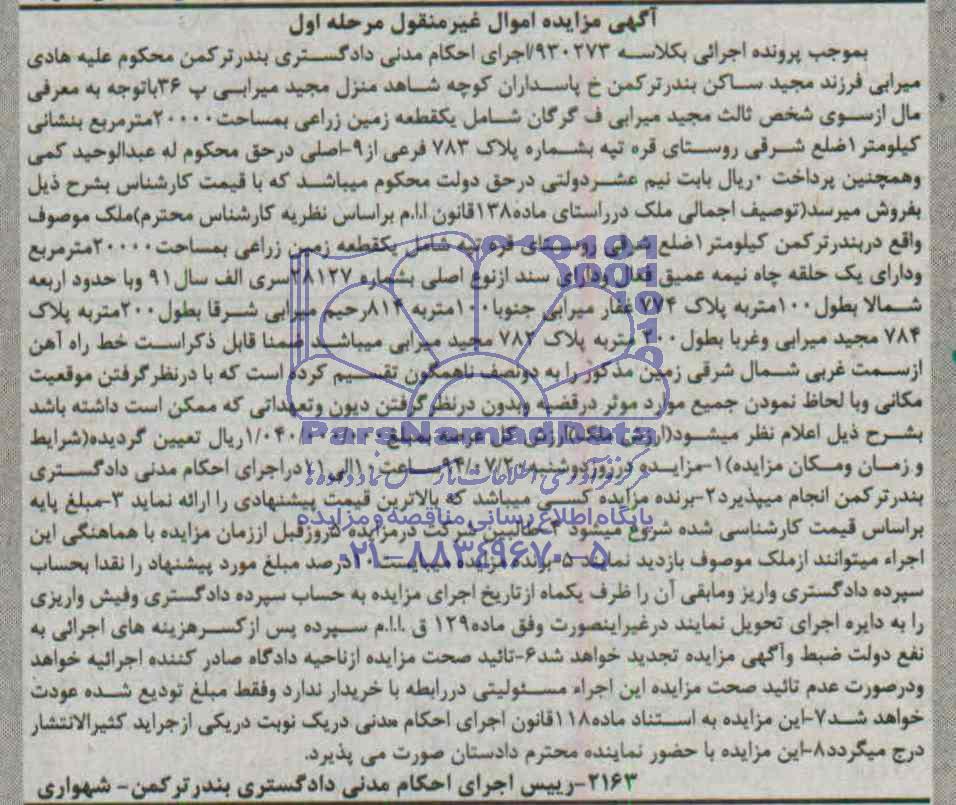 آگهی مزایده اموال غیرمنقول مرحله اول
بموجب پرونده اجرائی بکلاسه ۹۳۰۲۷۳/اجرای احکام مدنی دادگستری بندرترکمن محکوم علیه هادی
میرابی فرزند مجید ساکن بندرترکمن خ پاسداران کوچه شاهد منزل مجید میرابی پ ۳۶باتوجه به معرفی
مال ازسوی شخص ثالث مجید میرابی ف گرگان شامل یکقطعه زمین زراعی بمساحت۲۰۰۰۰مترمربع بنشانی
کیلومتر۱ضلع شرقی روستای قره تپه بشماره پلاک ۷۸۳ فرعی از۹-اصلی درحق محکوم له عبدالوحید کمی
وهمچنین پرداخت ۰ریال بابت نیم عشردولتی درحق دولت محکوم میباشد که با قیمت کارشناس بشرح ذیل
بفروش میرسد(توصیف اجمالی ملک درراستای ماده۱۳۸قانون ا.ا.م براساس نظریه کارشناس محترم)ملک موصوف
واقع دربندرترکمن کیلومتر۱ضلع شرقی روستای قره تپه شامل یکقطعه زمین زراعی بمساحت۲۰۰۰۰مترمربع
ودارای یک حلقه چاه نیمه عمیق فعال ودارای سند ازنوع اصلی بشماره ۲۸۱۲۷۰سری الف سال۹۱ وبا حدود اربعه
شمالا بطول۱۰۰متربه پلاک ۷۷۴ غفار میرابی جنوبا ۱۰۰متربه ۸۱۴رحیم میرابی شرقا بطول۲۰۰متربه پلاک
۷۸۴ مجید میرابی وغربا بطول ۲۰۰ متربه پلاک ۷۸۲ مجید میرابی میباشد ضمنا قابل ذکراست خط راه آهن
ازسمت غربی شمال شرقی زمین مذکور را به دونصف ناهمگون تقسیم کرده است که با درنظرگرفتن موقعیت
مکانی وبا لحاظ نمودن جمیع موارد موثر درقضیه وبدون درنظرگرفتن دیون وتعهداتی که ممکن است داشته باشد
بشرح ذیل اعلام نظر میشود(ارزش ملک)ارزش کل عرصه بمبلغ ۱/۰۴۰/۰۰۰/۰۰۰ریال تعیین گردیده(شرایط
و زمان ومکان مزایده)۱-مزایده درروزدوشنبه ۹۴/۰۷/۲۰ ساعت ۱۰الی۱۱دراجرای احکام مدنی دادگستری
بندرترکمن انجام میپذیرد۲-برنده مزایده کسی میباشد که بالاترین قیمت پیشنهادی را ارائه نماید ۳-مبلغ پایه
براساس قیمت کارشناسی شده شروع میشود ۴-طالبین شرکت درمزایده ۵روزقبل اززمان مزایده با هماهنگی این
اجراء میتوانند ازملک موصوف بازدید نمایند ۵-برنده مزایده میبایست ۱۰درصد مبلغ مورد پیشنهاد را نقدا بحساب
سپرده دادگستری واریز ومابقی آن را ظرف یکماه ازتاریخ اجرای مزایده به حساب سپرده دادگستری وفیش واریزی
را به دایره اجرای تحویل نمایند درغیراینصورت وفق ماده۱۲۹ ق .ا.ا.م سپرده پس ازکسرهزینه های اجرائی به
نفع دولت ضبط وآگهی مزایده تجدید خواهد شد۶-تائید صحت مزایده ازناحیه دادگاه صادر کننده اجرائیه خواهد
ودرصورت عدم تائید صحت مزایده این اجراء مسئولیتی دررابطه با خریدار ندارد وفقط مبلغ تودیع شده عودت
خواهد شد۷-این مزایده به استناد ماده۱۱۸قانون اجرای احکام مدنی دریک نوبت دریکی ازجراید کثیرالانتشار
درج میگردد۸-این مزایده با حضور نماینده محترم دادستان صورت می پذیرد.
۲۱۶۳-رییس اجرای احکام مدنی دادگستری بندرترکمن- شهواری
ParsNamadData
پایگاه اطلاع رسانی مناقصه و مزایده
۰۲۱-۸۸۳۴۹۶۷۰-۵